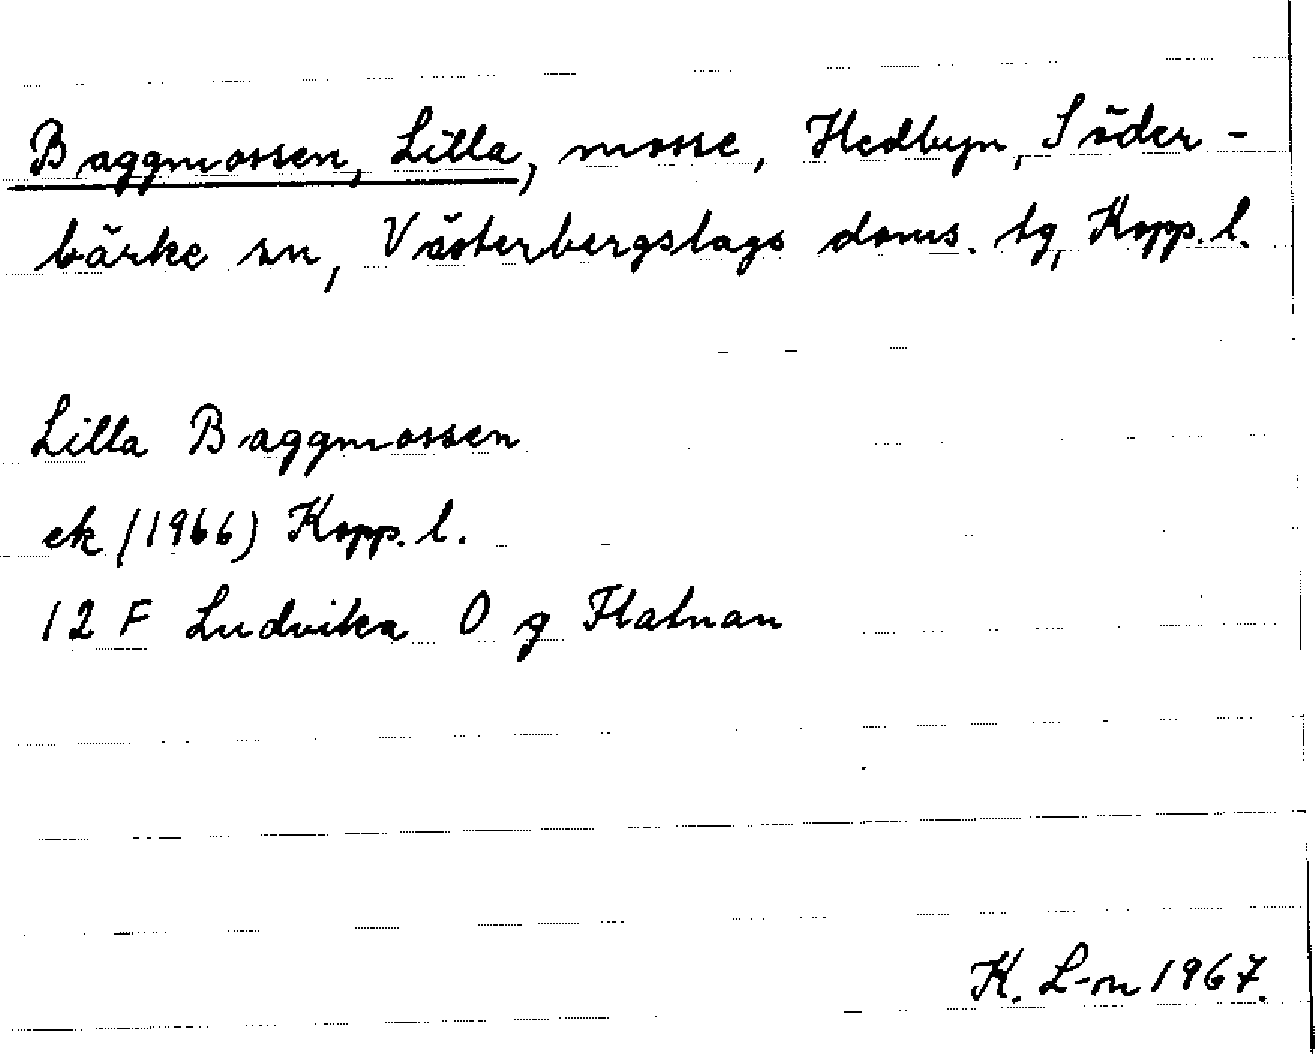 Baggmossen, Lilla, mosse, Hedbyn, Söder-
bärke sn, Västerbergslags doms. tg, Kopp. l.
Lilla Baggmossen
ek (1966) Kopp. l.
12 F Ludvika O g Flatnan
K. L-n 1967.